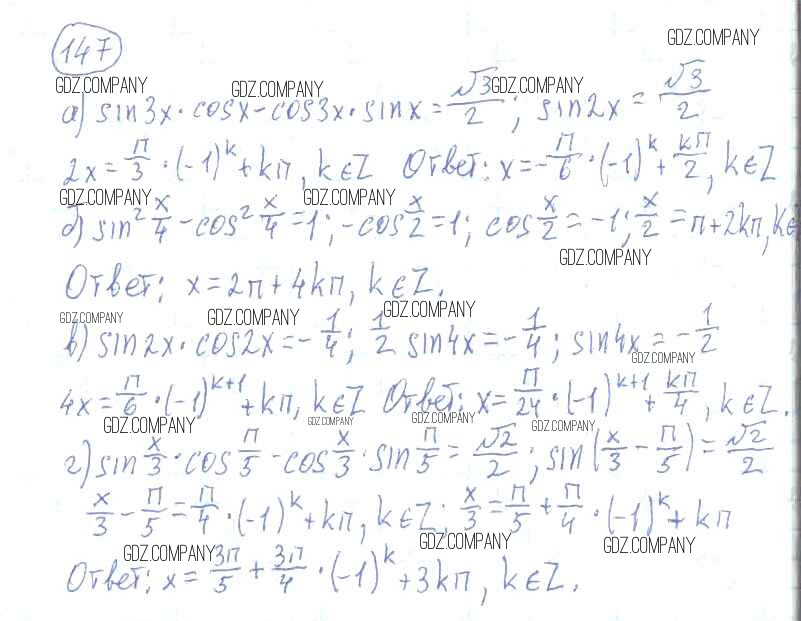 GDZ.COMPANY
147
GDZ.COMPANY GDZ.COMPANY GDZ.COMPANY
а) sin3x·cosx-cos3x·sinx=√3/2; sin2x=√3/2
2x=π/3·(-1)^k+kπ, k∈Z Ответ: x=-π/6·(-1)^k+kπ/2, k∈Z
GDZ.COMPANY GDZ.COMPANY
б) sin² x/4-cos² x/4=1; -cos x/2=1; cos x/2=-1; x/2=π+2kπ, k∈
GDZ.COMPANY
Ответ: x=2π+4kπ, k∈Z.
GDZ.COMPANY GDZ.COMPANY GDZ.COMPANY
в) sin2x·cos2x=-1/4; 1/2 sin4x=-1/4; sin4x=-1/2
GDZ.COMPANY
4x=π/6·(-1)^k+1+kπ, k∈Z Ответ: x=π/24·(-1)^k+1+kπ/4, k∈Z.
GDZ.COMPANY GDZ.COMPANY GDZ.COMPANY GDZ.COMPANY
г) sin x/3·cos π/5-cos x/3·sin π/5=√2/2; sin(x/3-π/5)=√2/2
x/3-π/5=π/4·(-1)^k+kπ, k∈Z; x/3=π/5+π/4·(-1)^k+kπ
GDZ.COMPANY GDZ.COMPANY GDZ.COMPANY
Ответ: x=3π/5+3π/4·(-1)^k+3kπ, k∈Z.